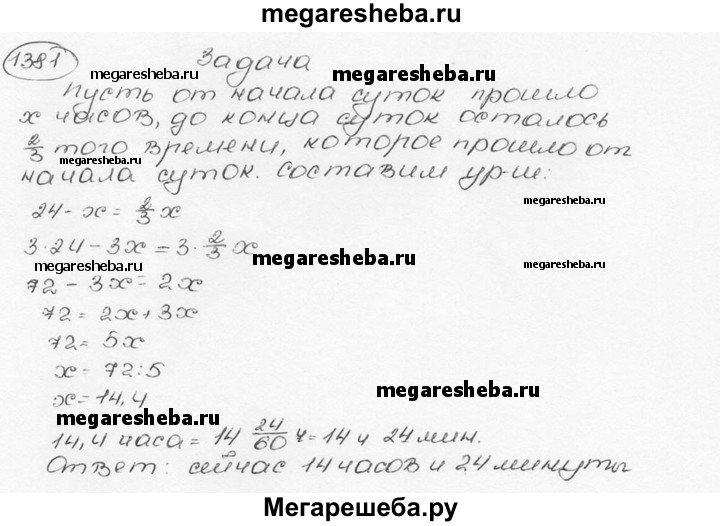 megaresheba.ru
1381 Задача
megaresheba.ru megaresheba.ru
Пусть от начала суток прошло
x часов, до конца суток осталось
2/3 того времени, которое прошло от
megaresheba.ru megaresheba.ru
начала суток. Составим ур-ие:
24 - x = 2/3 x
3·24 - 3x = 3· 2/3 x
megaresheba.ru megaresheba.ru megaresheba.ru
72 - 3x = 2x
72 = 2x + 3x
72 = 5x
x = 72:5
x = 14,4
megaresheba.ru megaresheba.ru
14,4 часа = 14 24/60 ч = 14 ч 24 мин.
Ответ: сейчас 14 часов и 24 минуты
Мегарешеба.ру